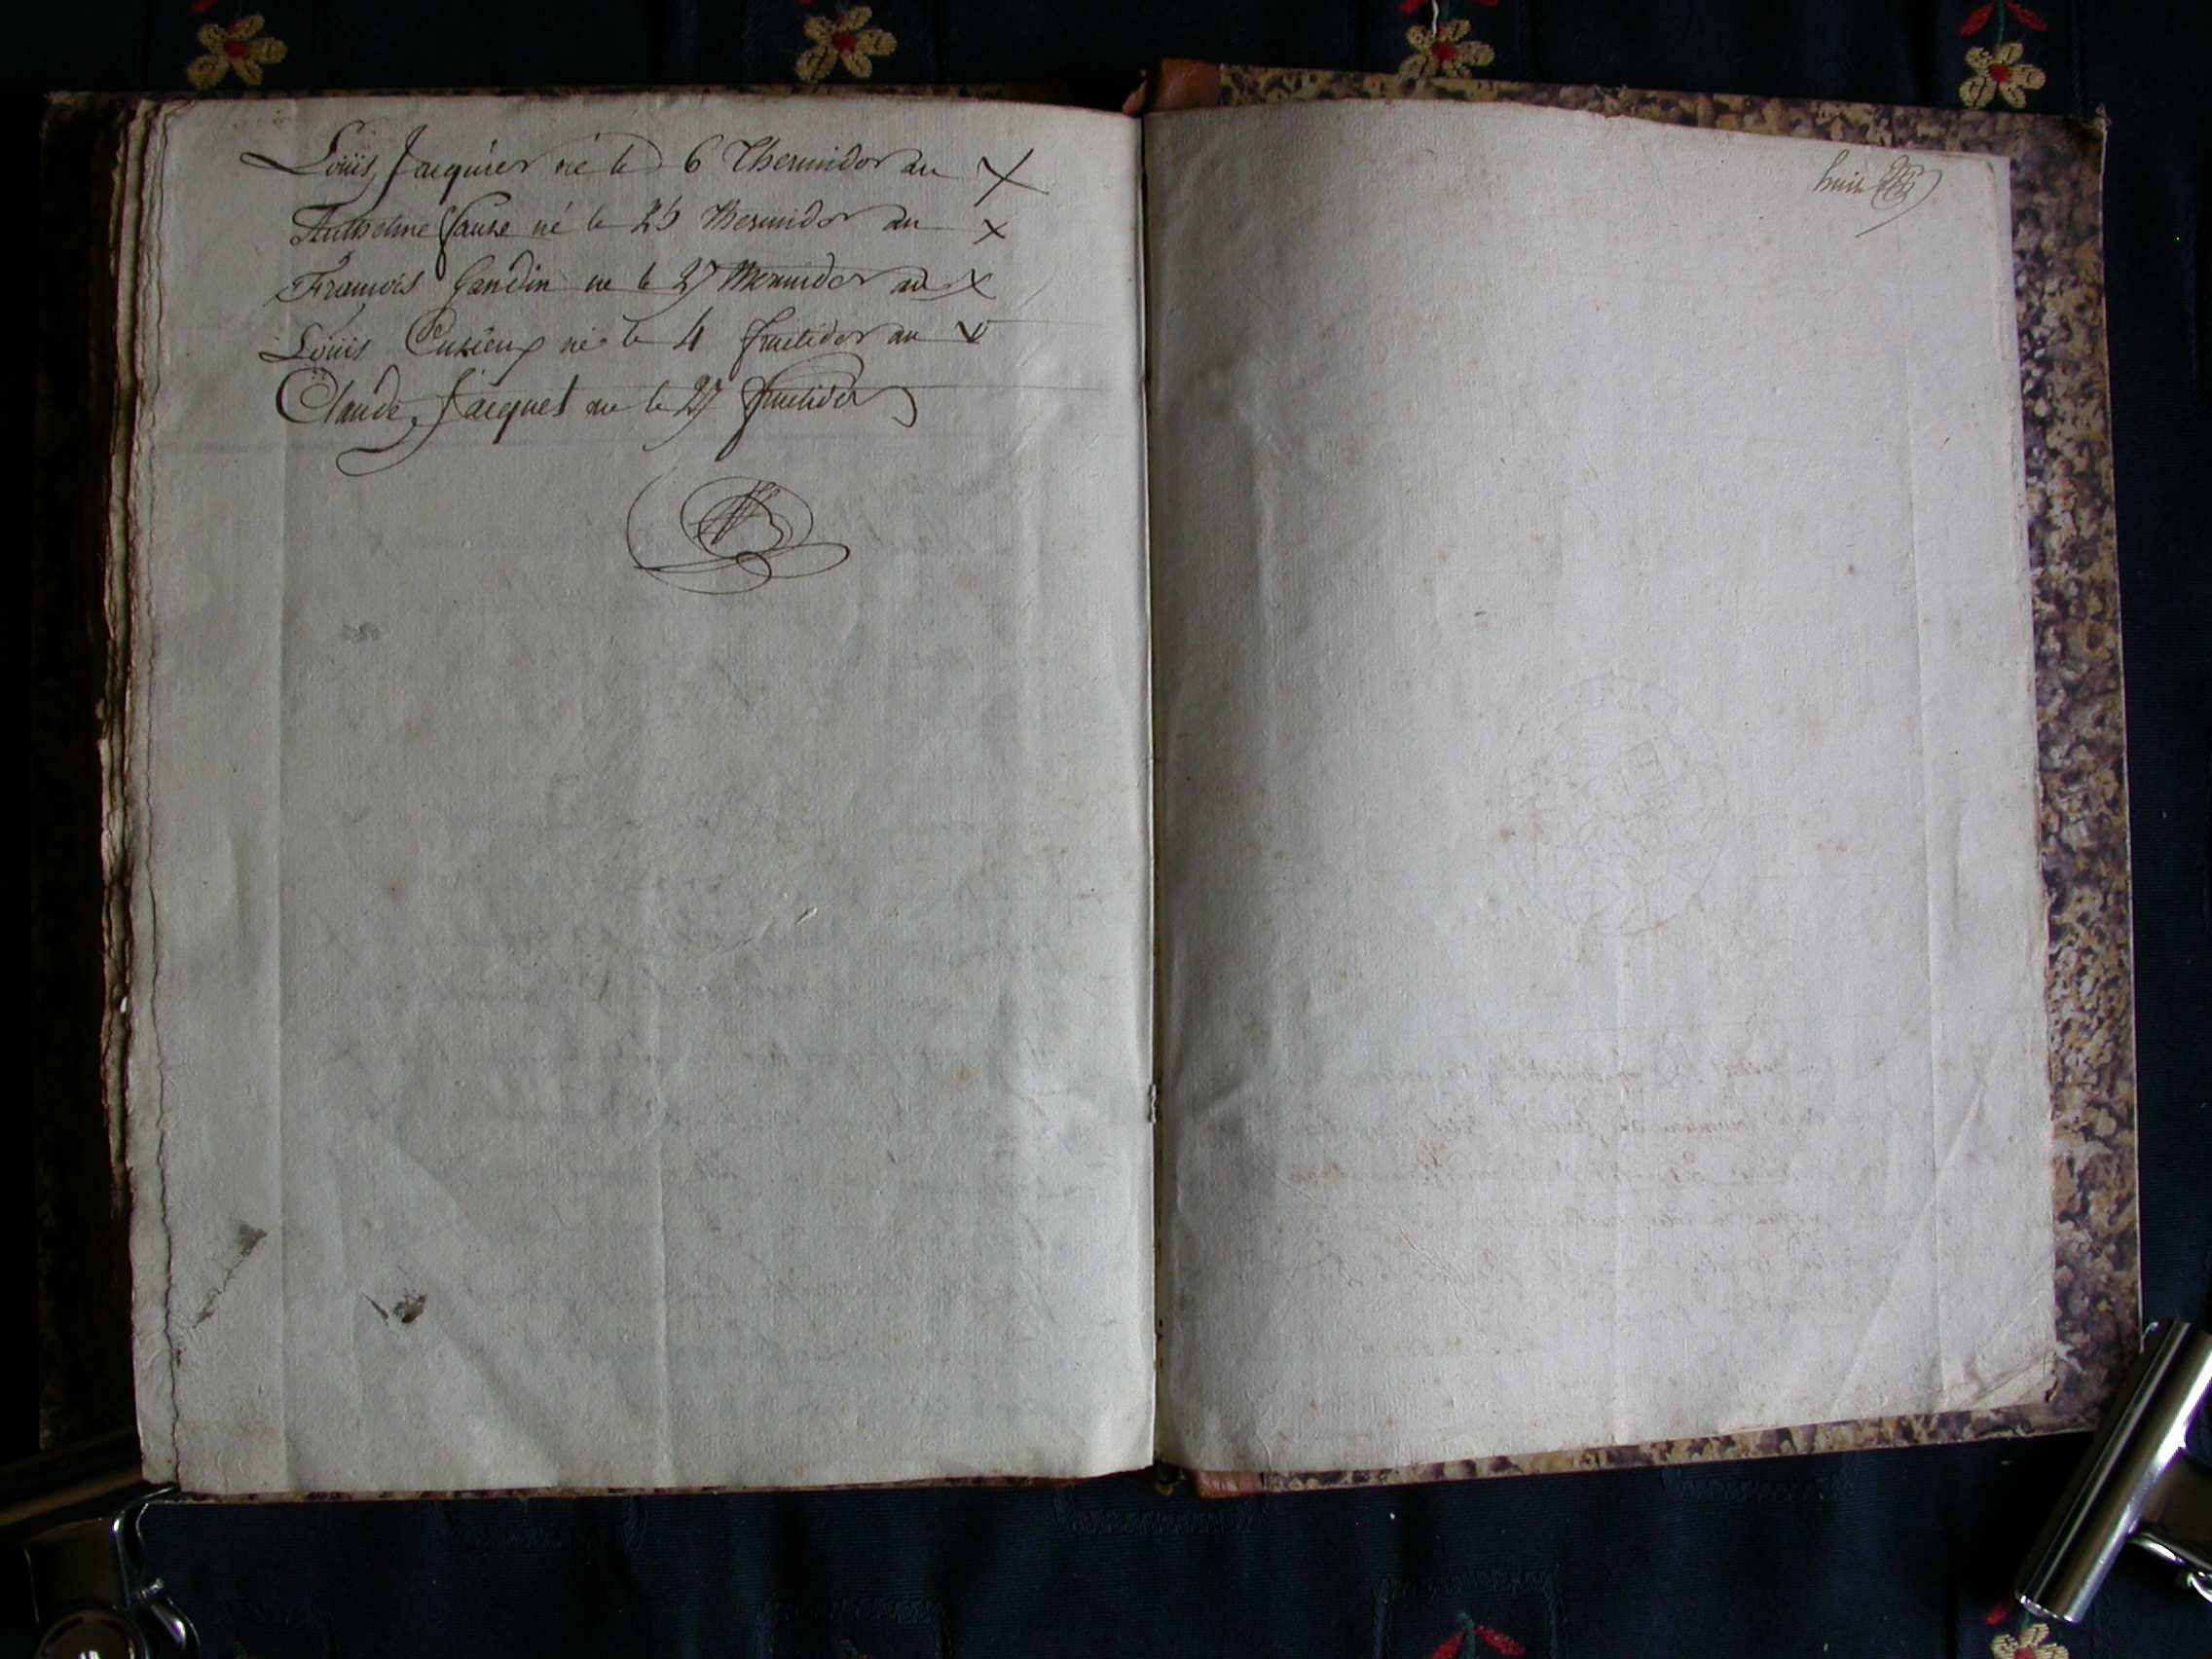 Loüis Jacquier né le 6 Thermidor an X
Anthelme Faure né le 25 Thermidor an X
François Gandin ne le 27 Thermidor an X
Loüis Cusieux né le 4 fructidor an X
Claude Jacquet ne le 27 fructidor
huit